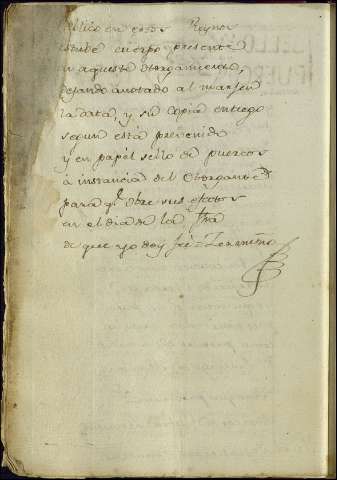 blico en estos Reynos
estube cuerpo presente
en aqueste otorgamiento,
dejando anotado al margen
la data, y su copia entrego
segun está prevenido
y en papél sello de puercos
á instancia del Otorgante
para q.e obre sus efectos
en el dia de la fha
de que yo doy feé =